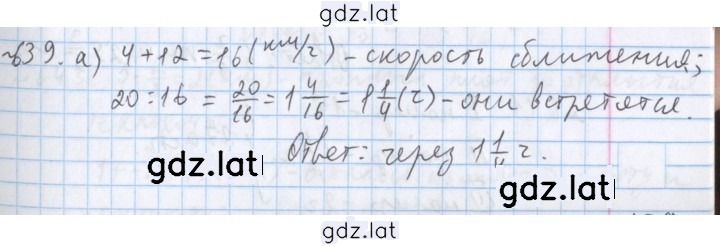 gdz.lat
№639. а) 4+12=16(км/ч) - скорость сближения;
20:16 = 20/16 = 1 4/16 = 1 1/4 (ч) - они встретятся.
Ответ: через 1 1/4 ч.
gdz.lat
gdz.lat
gdz.lat